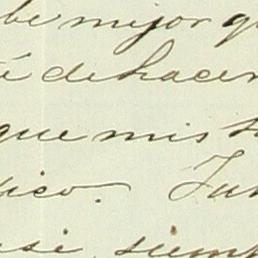 be mijor q
té de hacer
que mis
tico. Jun
si, siemp